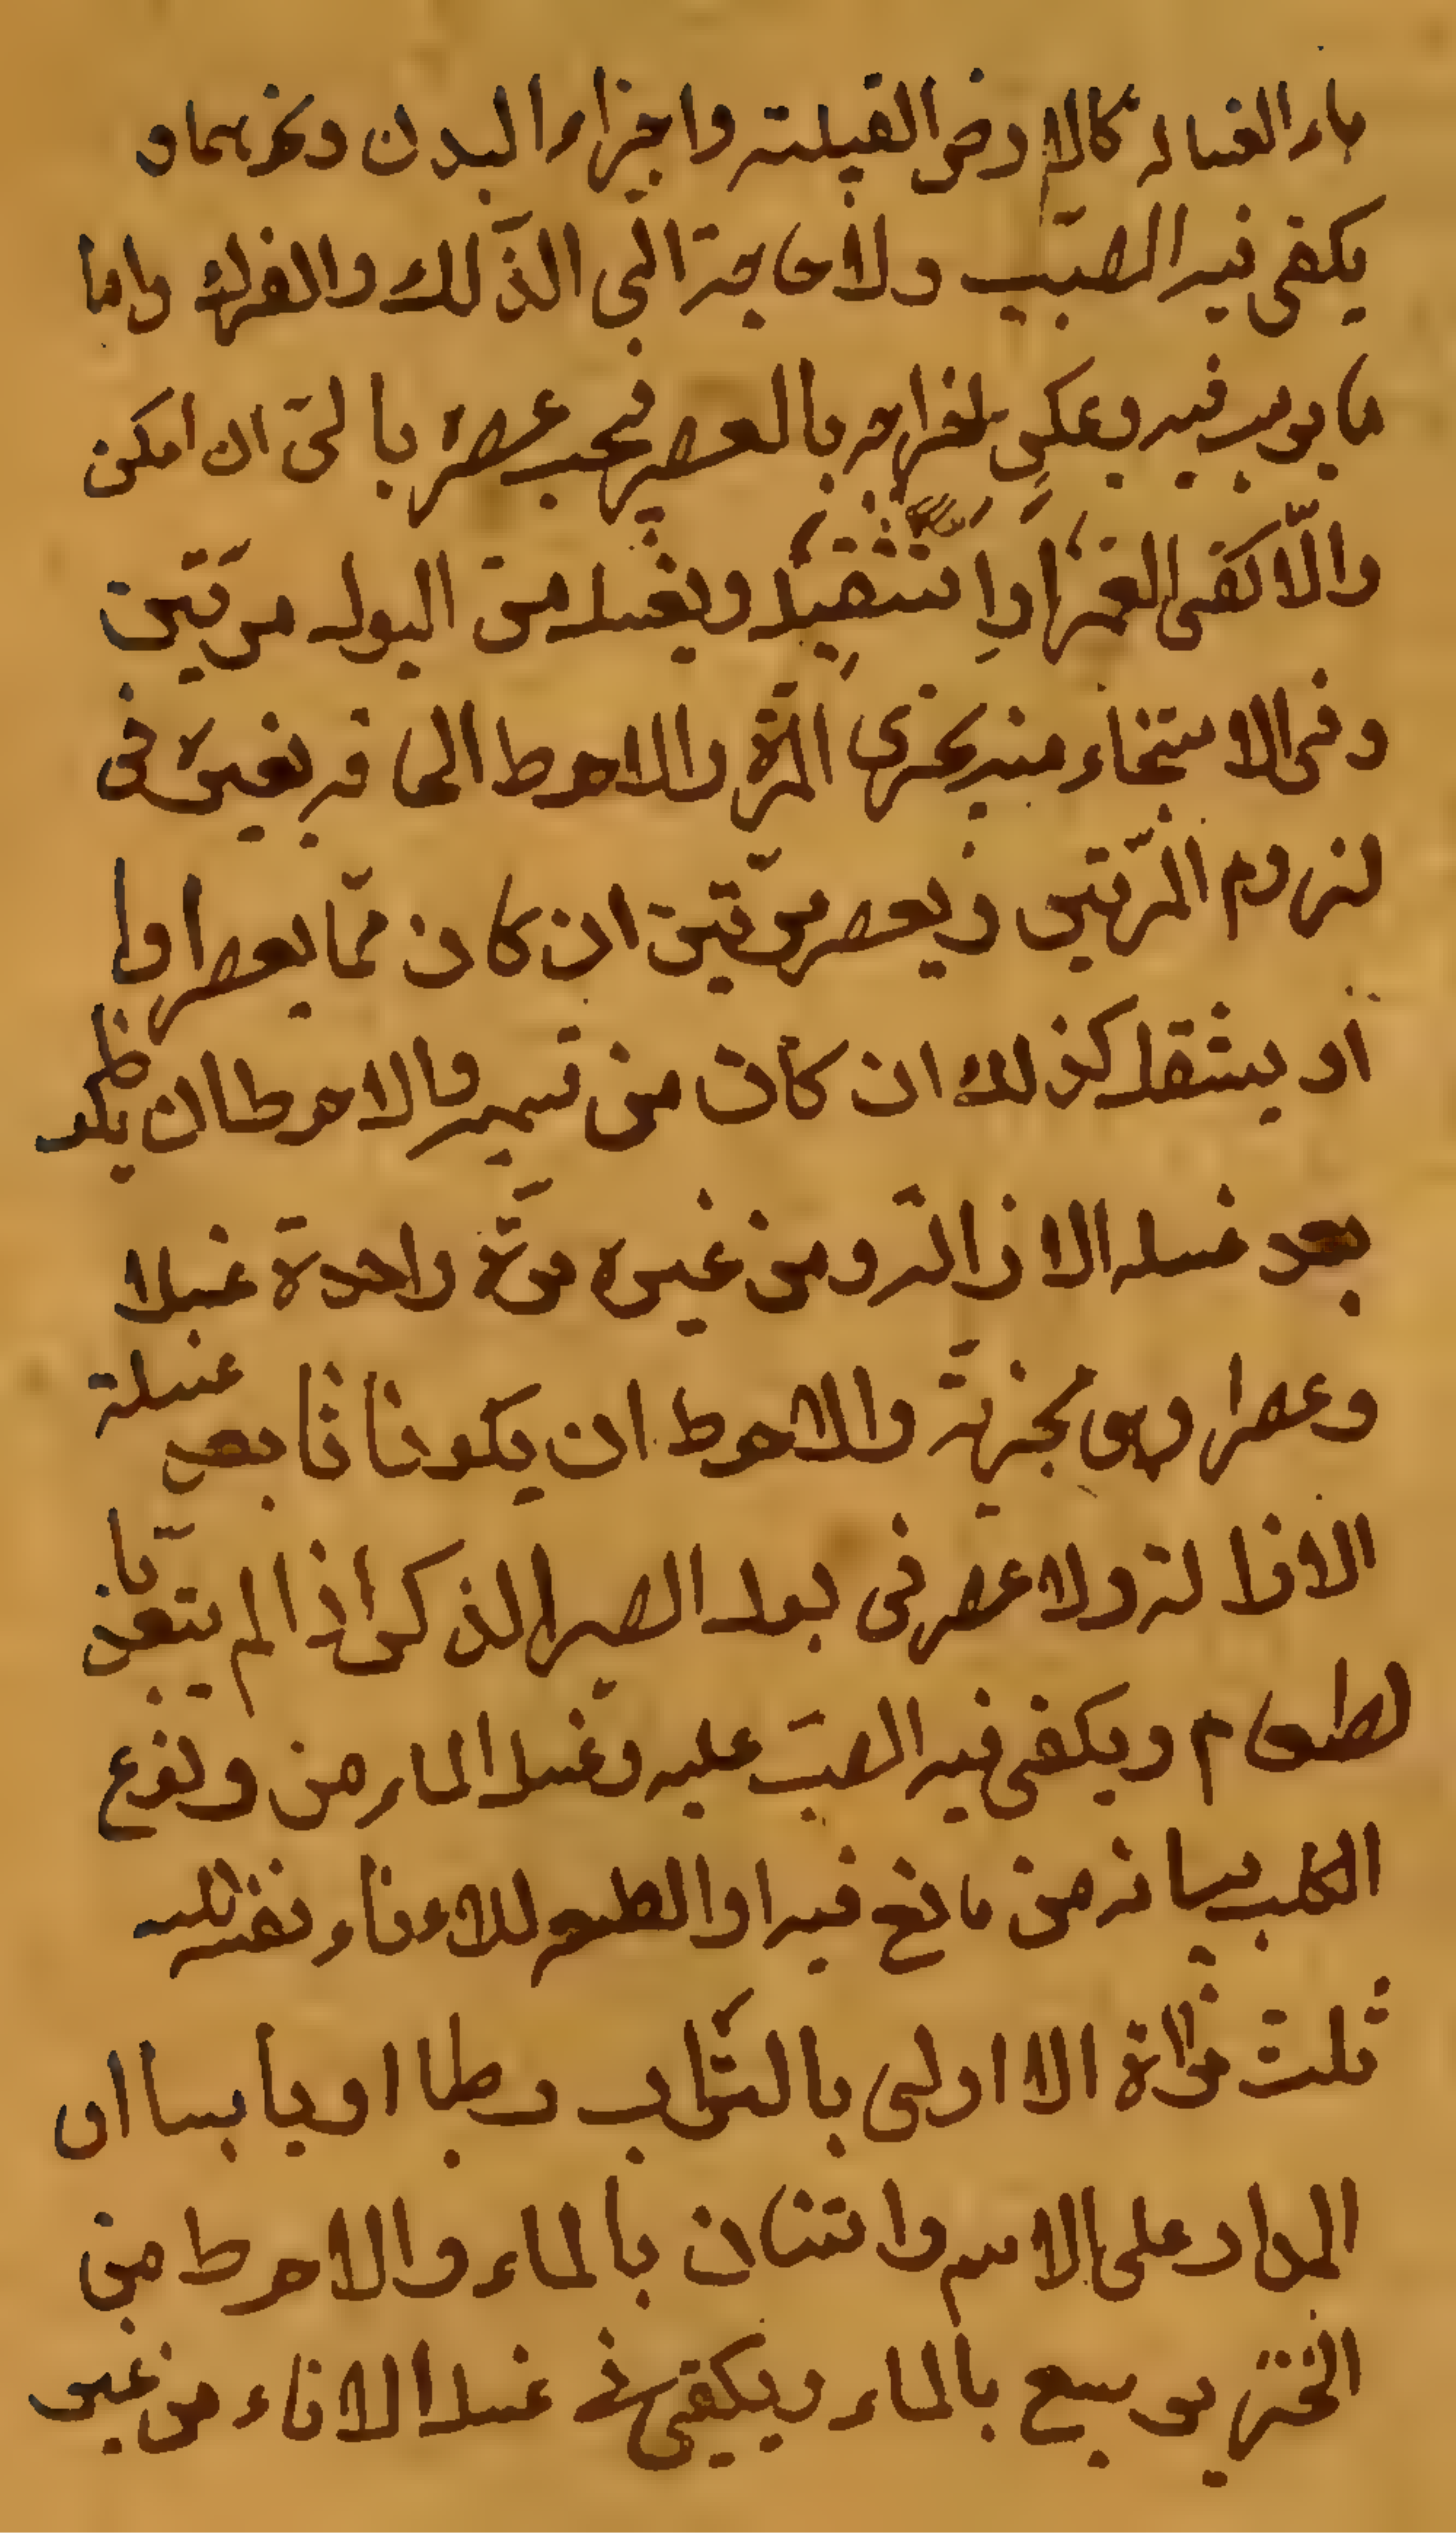 ماء الغسالة كالارض الثقيلة واجزاء البدن ونحوهما و
يكفى فيه الصبّ ولا حاجة الى الدّلك والفرك واما
ما يرسب فيه ويمكن اخراجه بالعصر فيجب عصره بالىّ ان امكن
والّا كفى الغمز او التثقيل ويغسل من البول مرّتين
وفى الاستنجاء منه يجزى المرّة والاحوط الحاق غيره فى
لزوم المرّتين ويعصر مرّتين ان كان ممّا يعصر اولا
او يثقل كذلك ان كان من قسيمه والاحوط ان يكو
بعد غسله الازالة ومن غيره مرّة واحدة غسلا
وعصرا وهى مجزية والاحوط ان يكونا بعد غسلة
الازالة ولا عصر فى بول الصبى الذكر اذا لم يتغذّ با
لطعام ويكفى فيه الصبّ عليه وغسل الماء من ولوغ
الكلب بلسانه من مايع فيه او الطعه للاناء نفسه
ثلث مرّاة الاولى بالتّراب رطبا او يابسا اذ
المدار على الاسم واثنتان بالماء والاحوط من
الخنزير سبع بالماء ويكفى فى غسل الاناء من غير